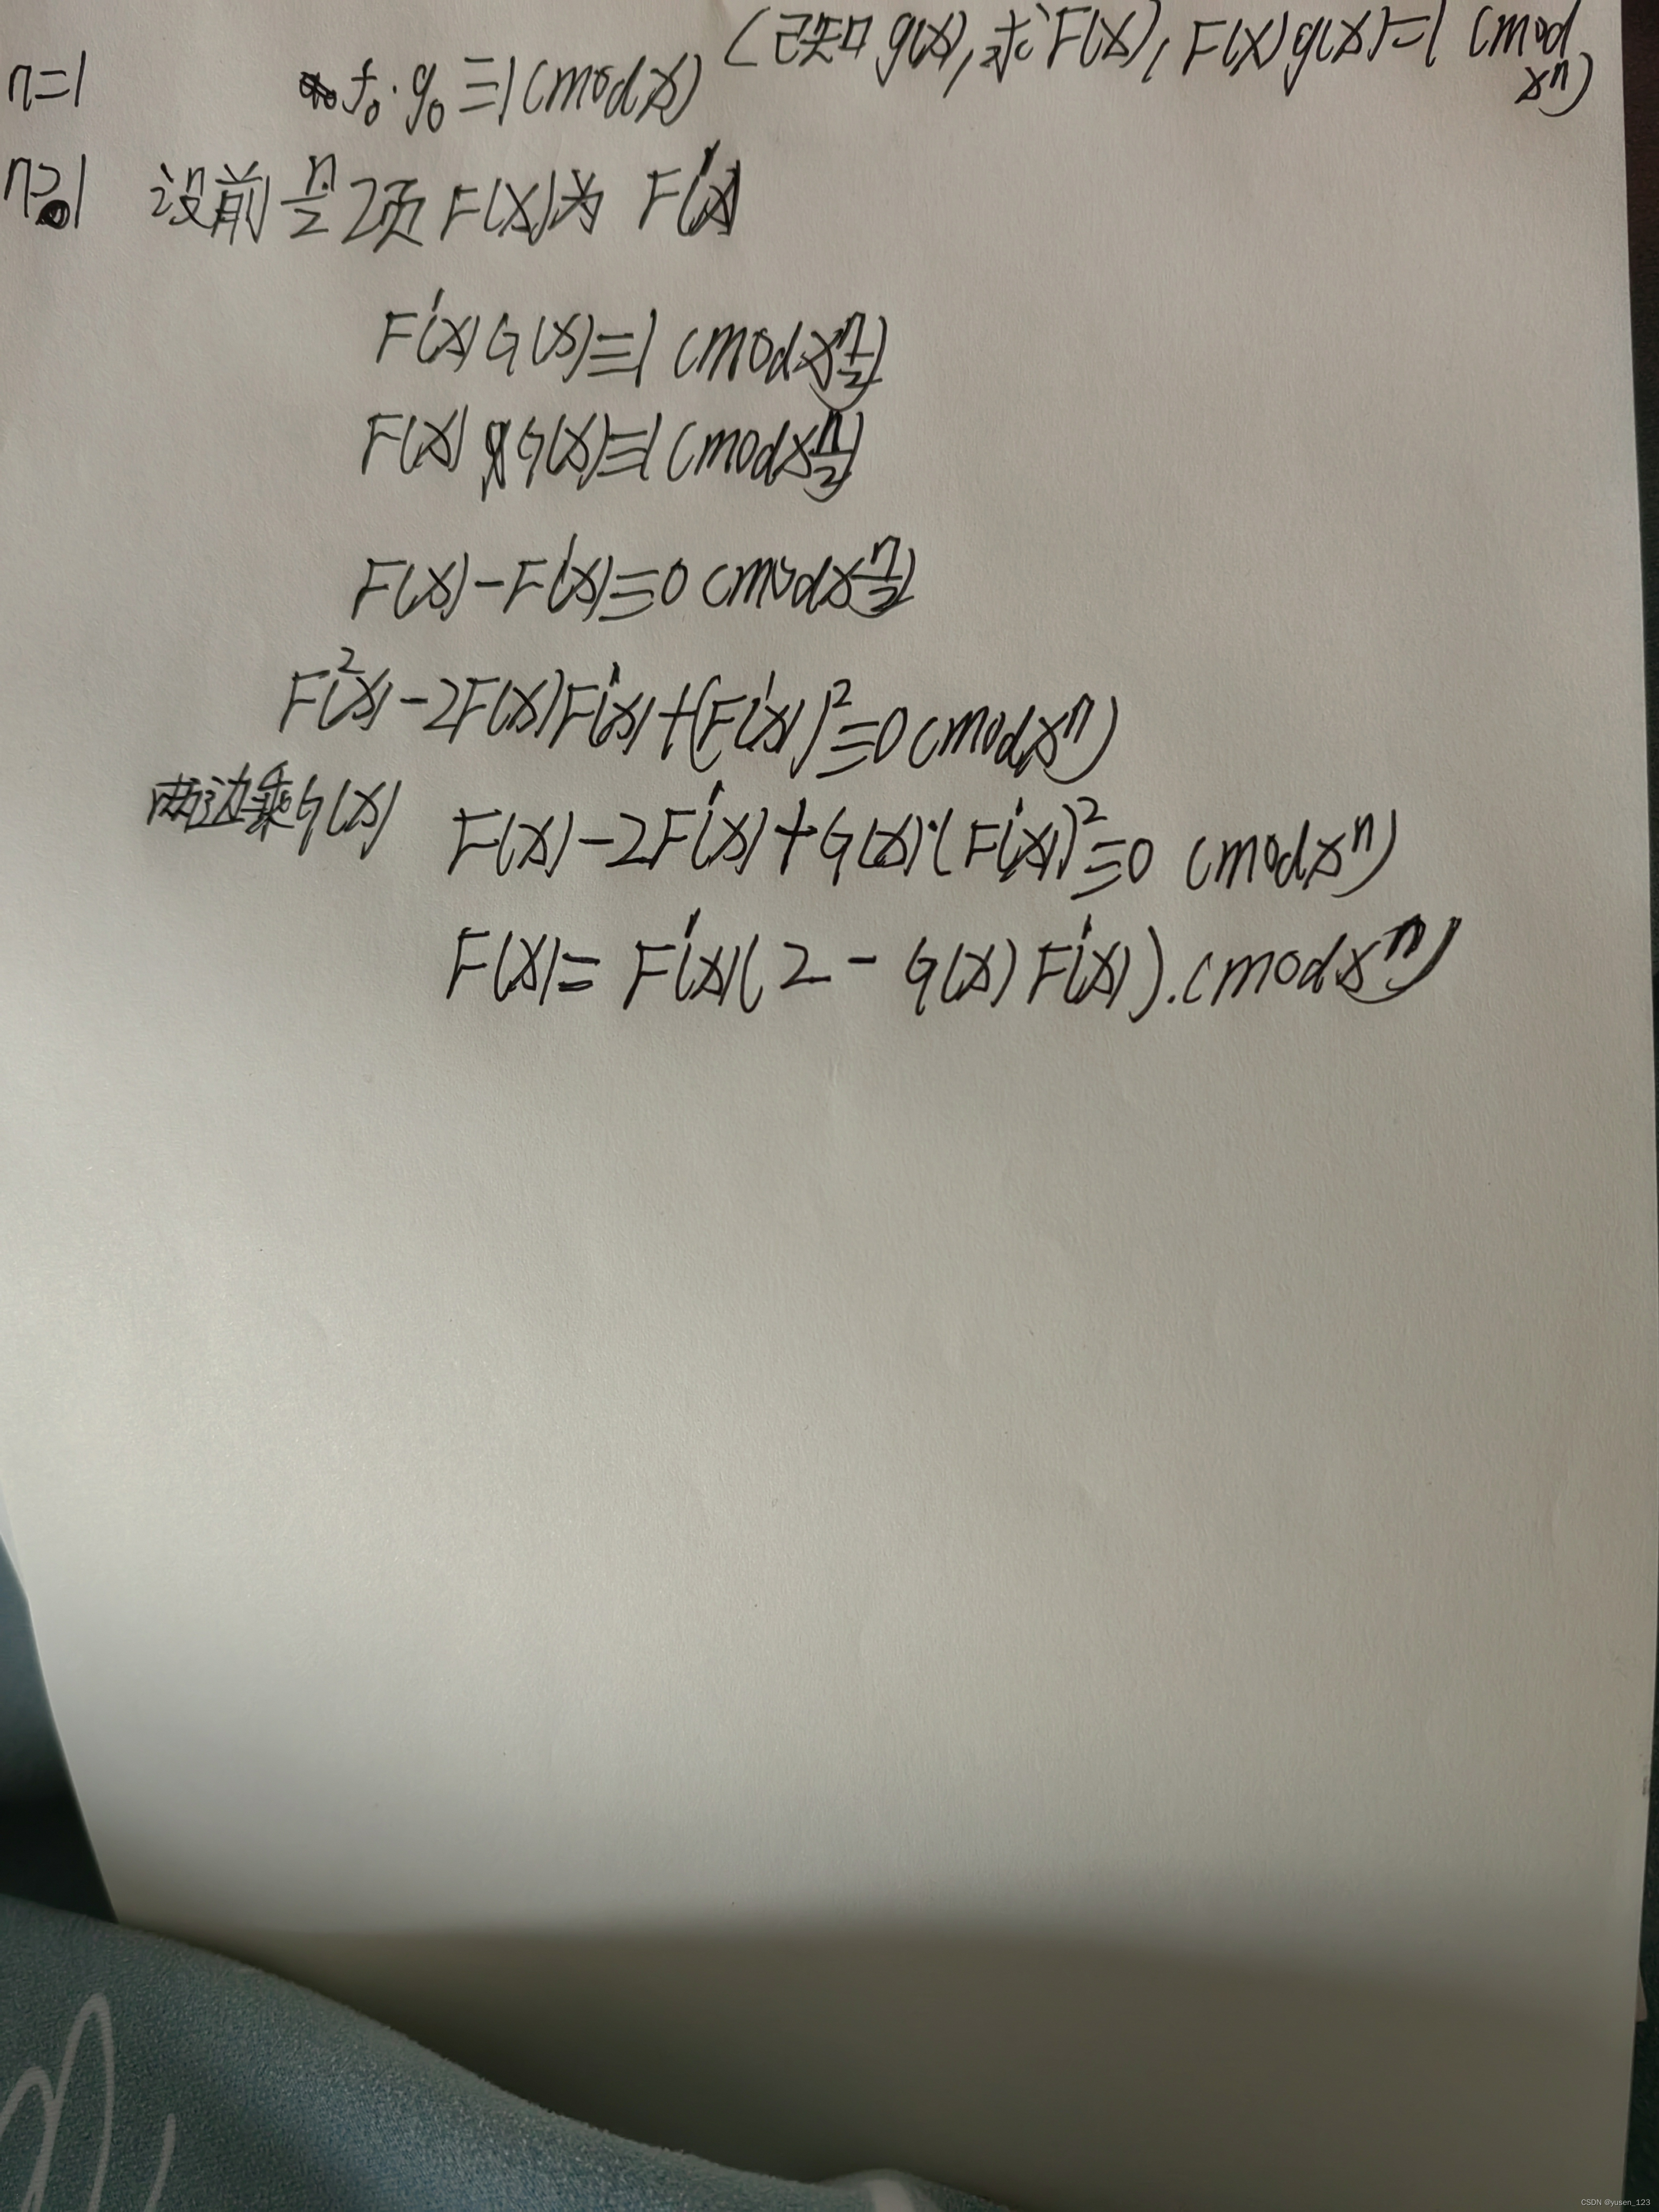 (已知g(x),求F(x), F(x)g(x)=1 (mod xⁿ)
n=1 f₀·g₀≡1(mod x)
n>1 设前n/2项F(x)为 F'(x)
F'(x)G(x)≡1 (mod x^(n/2))
F(x)G(x)≡1 (mod x^(n/2))
F(x)-F'(x)≡0 (mod x^(n/2))
F²(x)-2F(x)F'(x)+(F'(x))²≡0(mod xⁿ)
两边乘G(x) F(x)-2F'(x)+G(x)·(F'(x))²≡0 (mod xⁿ)
F(x)= F'(x)(2-G(x)F'(x)).(mod xⁿ)
CSDN @yusen_123